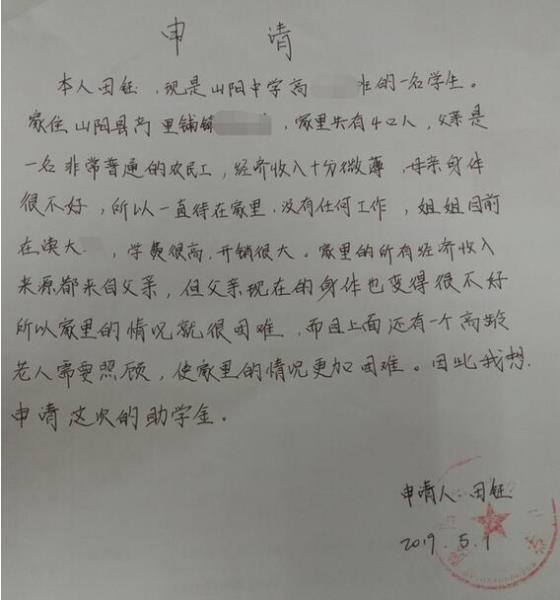 申 请
本人田钰,现是山阳中学高 班的一名学生。
家住山阳县高里铺镇 ,家里共有4口人,父亲是
一名非常普通的农民工,经济收入十分微薄,母亲身体
很不好,所以一直待在家里,没有任何工作,姐姐目前
在读大 ,学费很高,开销很大。家里的所有经济收入
来源都来自父亲,但父亲现在的身体也变得很不好
所以家里的情况就很困难,而且上面还有一个高龄
老人需要照顾,使家里的情况更加困难。因此我想
申请这次的助学金。
申请人:田钰
2019.5.1